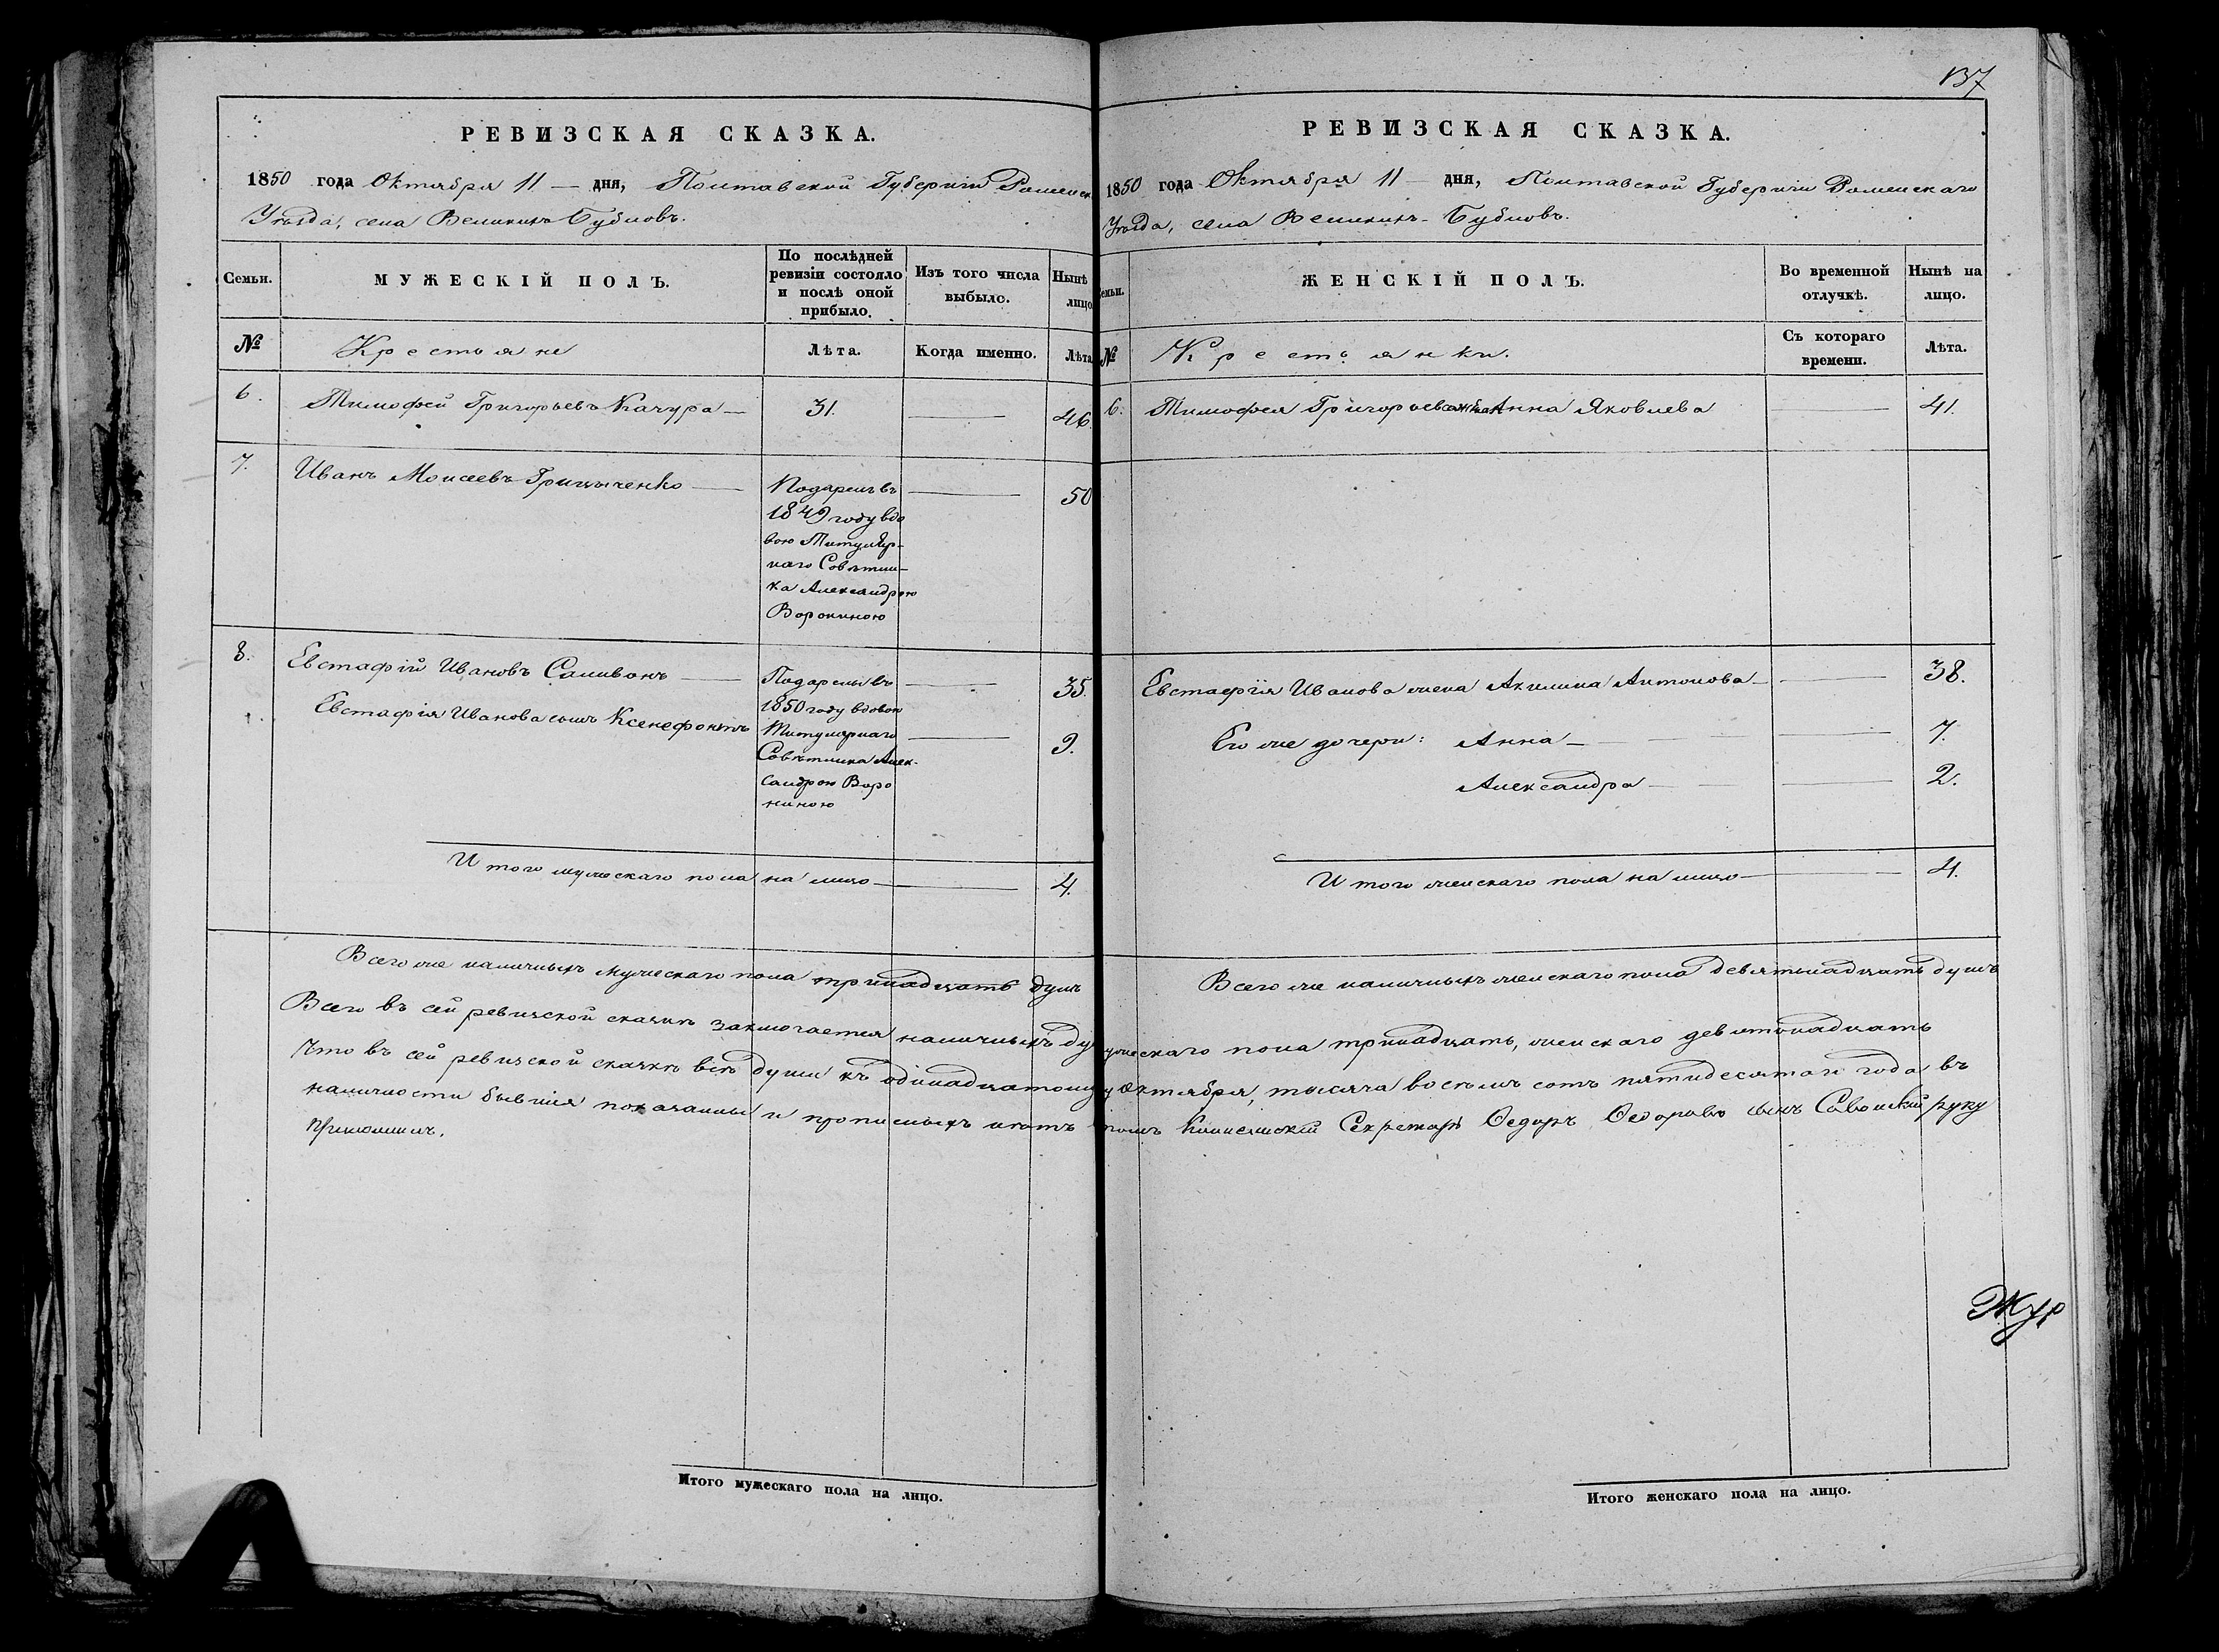 РЕВИЗСКАЯ СКАЗКА.
1850 года Октября 11 — дня, Полтавской Губерніи Роменск
Уѣзда, села Великихъ Бубновъ.
Семьи.
МУЖЕСКІЙ ПОЛЪ.
По послѣдней
ревизіи состояло
и послѣ оной
прибыло.
Изъ того числа
выбыло.
Нынѣ
лицо
№
Крестьяне
Лѣта.
Когда именно.
Лѣта
6.
Тимофей Григорьевъ Качура —
31.
46.
7.
Иванъ Моисеевъ Грицыченко
Подаренъ въ
1849 году вдо
вою Титуляр-
наго Совѣтни-
ка Александрою
Ворониною
50
8.
Евстафій Ивановъ Саливонъ
Евстафія Иванова сынъ Ксенефонтъ
Подарены въ
1850 году вдовою
Титулярнаго
Совѣтника Алек-
сандрою Воро
ниною
35.
9.
Итого мужескаго пола на лицо
4.
Всего же наличныхъ мужескаго пола тринадцать душъ
Всего въ сей ревизской сказкѣ заключается наличныхъ ду
Что въ сей ревизской сказкѣ всѣ души къ одинадцатому
наличности бывшія показаны и прописныхъ нѣтъ
приложилъ.
Итого мужескаго пола на лицо.
137
РЕВИЗСКАЯ СКАЗКА.
1850 года Октября 11 — дня, Полтавской Губерніи Роменскаго
Уѣзда, села Великихъ-Бубновъ.
Семьи.
ЖЕНСКІЙ ПОЛЪ.
Во временной
отлучкѣ.
Нынѣ на
лицо.
№
Крестьянки.
Съ котораго
времени.
Лѣта.
6.
Тимофея Григорьева жена Анна Яковлева
41.
Евстафія Иванова жена Акилина Антонова
38.
Его же дочери: Анна —
7.
Александра
2.
Итого женскаго пола на лицо
4.
Всего же наличныхъ женскаго пола девятьнадцать душъ
ужескаго пола тринадцать, женскаго девятьнадцать
у Октября, тысяча восемь сотъ пятидесятаго года въ
Колнежскій Секретарь Ѳедоръ Ѳедоровъ сынъ Савойскій руку
Жур
Итого женскаго пола на лицо.